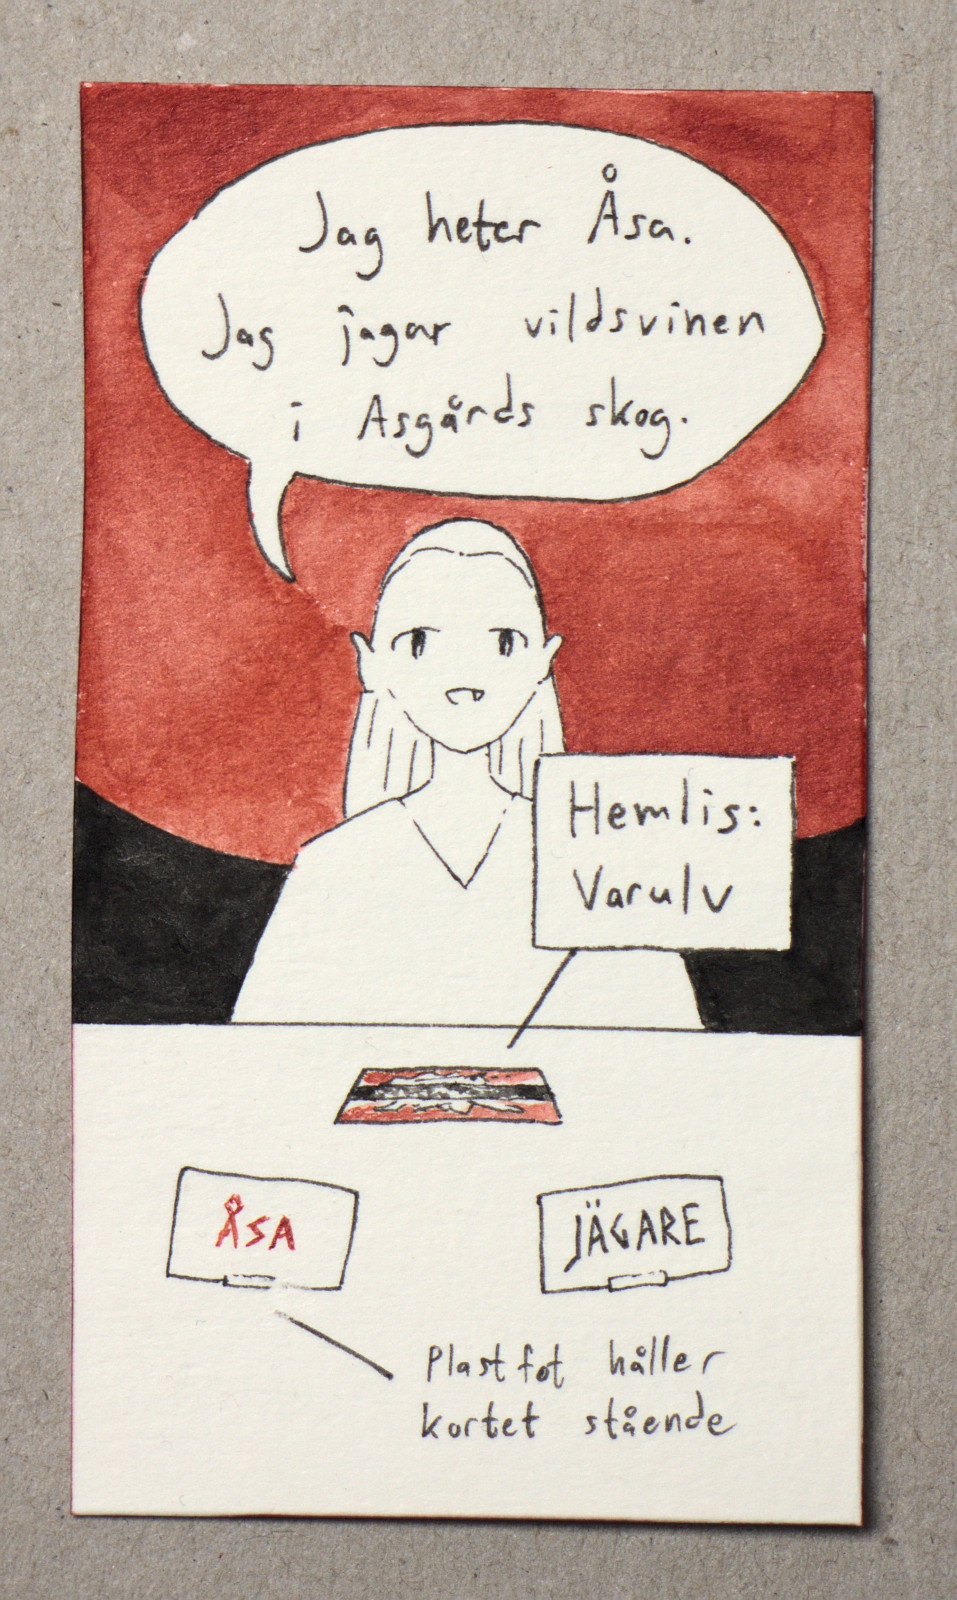 Jag heter Åsa.
Jag jagar vildsvinen
i Asgårds skog.
Hemlis:
Varulv
ÅSA
JÄGARE
Plastfot håller
kortet stående